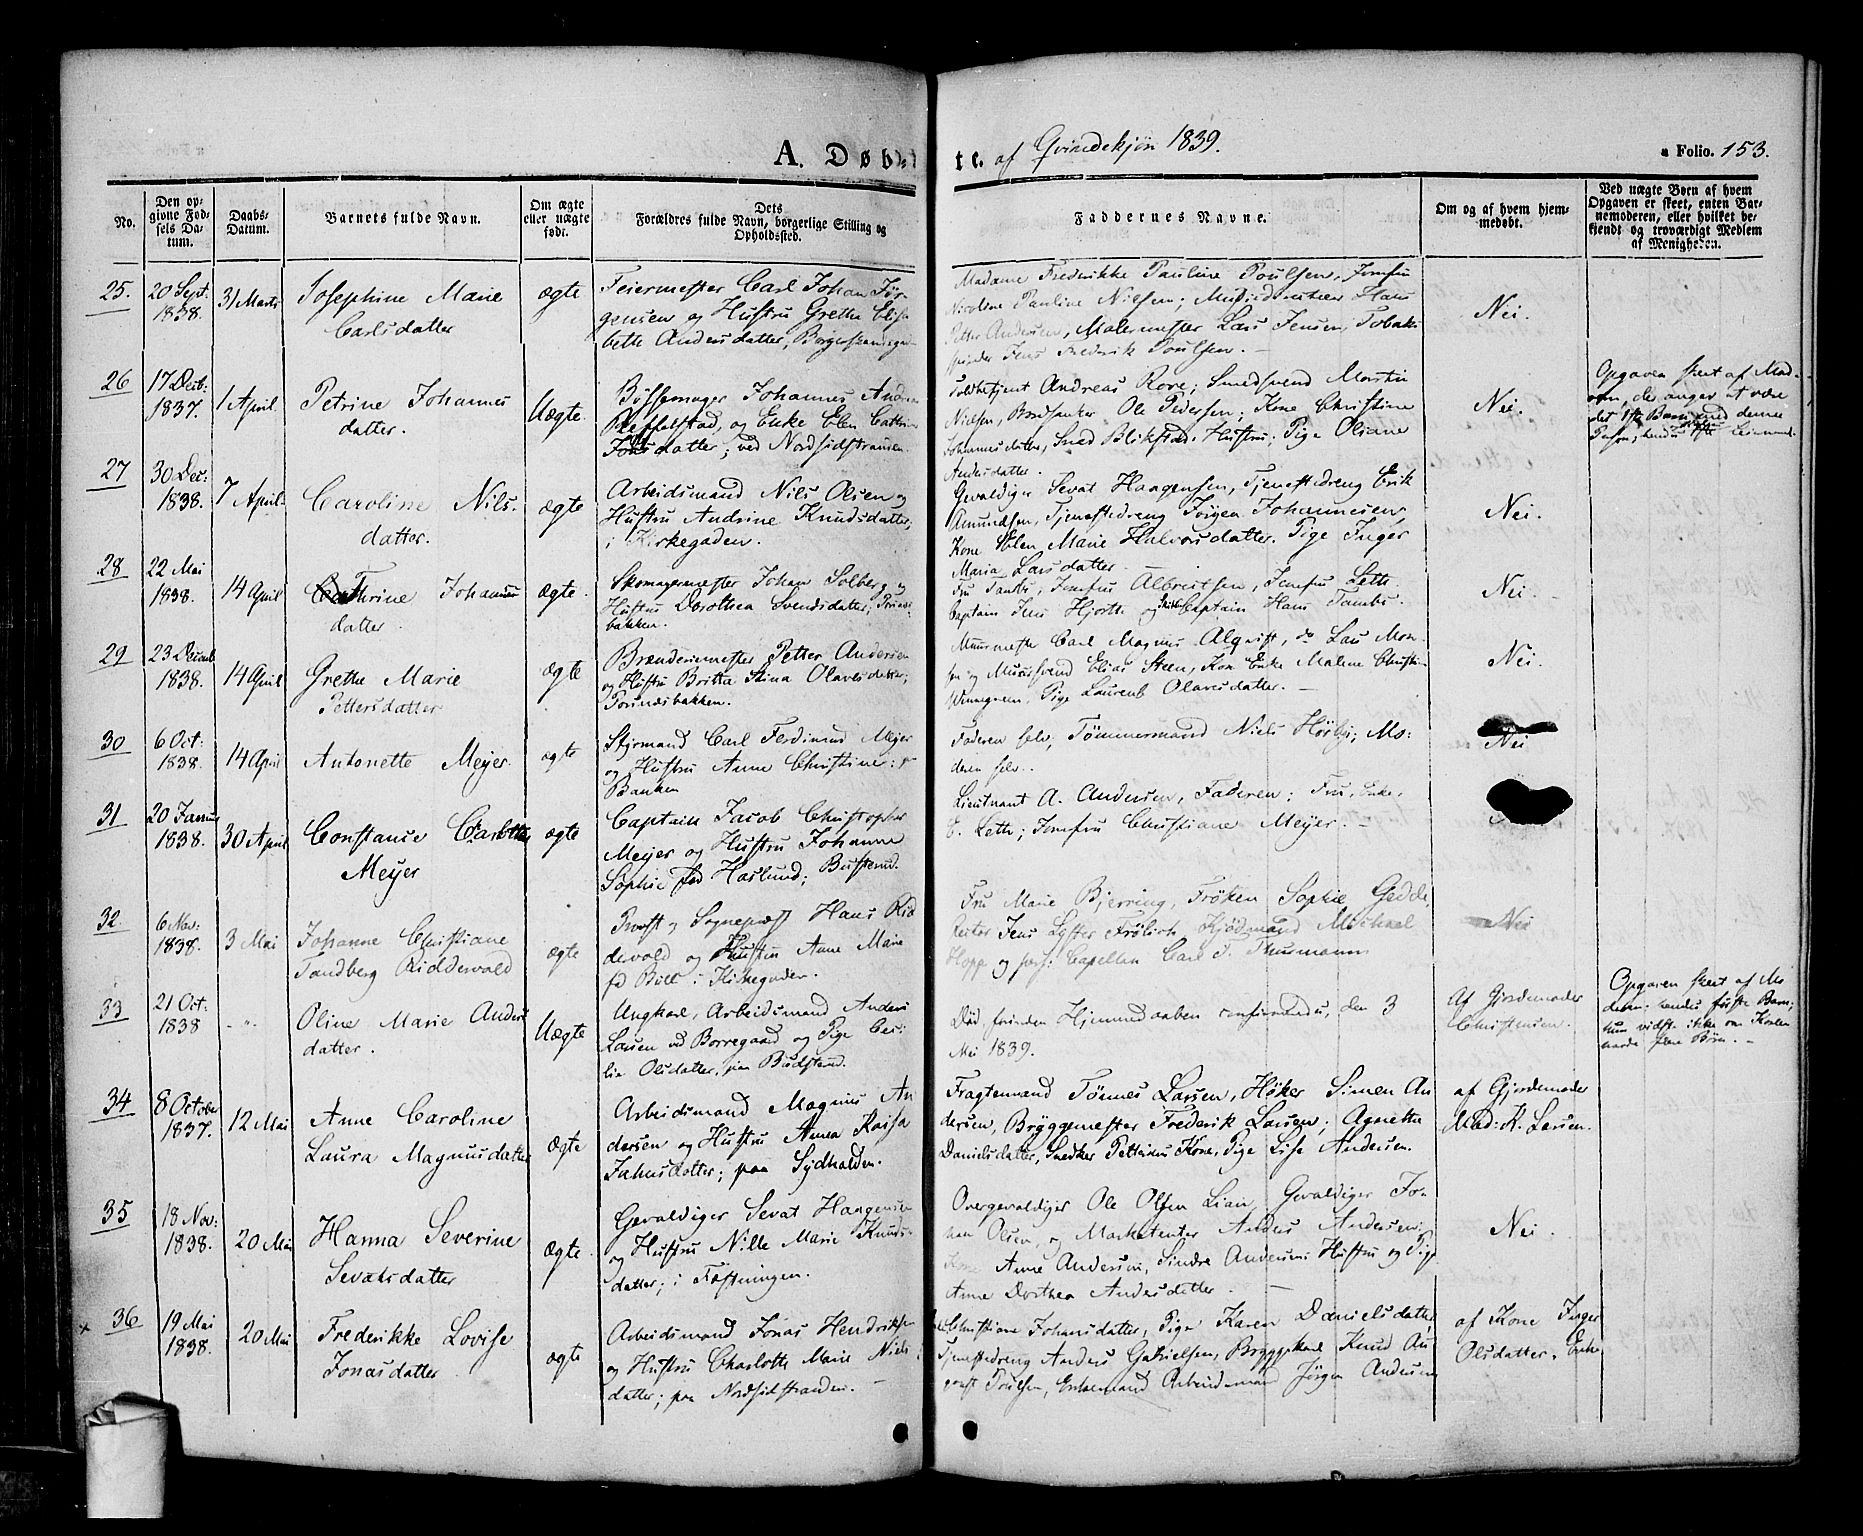 A. Døbte. af Qvindekjøn 1839.
Folio. 153.
No.
Den opgivne Fødsels Datum.
Daabs-Datum.
Barnets fulde Navn.
Om ægte eller uægte født.
Dets Forældres fulde Navn, borgerlige Stilling og Opholdssted.
Faddernes Navne.
Om og af hvem hjemmedøbt.
Ved uægte Børn af hvem Opgaven er skeet, enten Barnemoderen, eller hvilket bekjendt og troværdigt Medlem af Menigheden.
25.
20 Sept.
1838.
31 Marts
Josephine Marie
Carlsdatter
ægte
Feiermester Carl Johan Jør-
gensen og Hustru Grethe Elisa
beth Andersdatter,
Madame Frederikke Pauline Poulsen, Jomfru
Nicoline Pauline Nielsen; Hans
Petter Andersen, Malermester Lars Jensen, Tobak-
spinder Jens Frederik Poulsen. –
Nei.
26
17 Decb:
1837.
1 April
Petrine Johannes
datter.
Uægte.
Bøssemager Johannes
og Enke Elen Cathrine
datter; ved Nordsidstranden.
Toldbetjent Andreas Rove; Smedsvend Martin
Nielsen, Ole Pedersen; Kone Christine
Johannesdatter, Hustru; Pige Oliane
Andersdatter.
Nei.
Opgaven skeet af Mod-
ren, der anger at være
det 1ste Barn med denne
27
30 Dec:
1838.
7 April
Caroline Nils-
datter.
ægte
Arbeidsmand Nils Olsen og
Hustru Andrine Knudsdatter,
i Kirkegaden.
Gevaldiger Sevat Haagensen, Tjenestedreng Erik
Amundsen, Tjenestedreng Jørgen Johannesen,
Kone Elen Marie Halvorsdatter. Pige Inger
Maria Larsdatter. –
Nei.
28
22 Mai
1838.
14 April
Cathrine Johannes
datter.
ægte.
Skomagermester Johan Solberg og
Hustru Dorothea Svendsdatter,
bakken.
Fru Tambs, Jomfru Albretsen, Jomfru Leth.
Captain Jens Hjorth og Captain Hans Tambs.
Nei.
29
23 Decemb
1838.
14 April
Grethe Marie
Pettersdatter
ægte
Brænderiemester Petter Andersen
og Hustru Britta Stina Olavesdatter;
Murmester Carl Magnus Alqvist, do Lars Mon-
sen og Murersvend Elias Steen, Kone Enke Malene Christi-
Pige Laurenb Olavesdatter. –
Nei.
30
6 Oct:
1838.
14 April
Antonette Meyer
ægte
Styrmand Carl Ferdinand Meyer
og Hustru Anne Christine:
Banken
Faderen selv, Tømmermand Niels Høiby; Mo-
deren selv.
Nei
31
20 Januar
1838.
30 April
Constance Carlotte
Meyer
ægte
Captain Jacob Christopher
Meyer og Hustru Johanne
Sophie fød Haslund;
Lieutnant A. Andersen, Faderen; Fru, Enke,
Leth; Jomfru Christiane Meyer. –
32
6 Nov:
1838.
3 Mai
Johanne Christiane
Tandberg Riddervold
ægte
Provst og Sognepræst Hans Rid
dervold og Hustru Anne Marie
fd Bull i Kirkegaden.
Fru Marie Bjerring, Frøken Sophie Gedde,
Rector Jens Frölich, Kjöbmand Michael
Hopp og pers: Capellan Carl J. Thusmann
Nei
33
21 Oct:
1838
- " -
Oline Marie Anders
datter.
Uægte
Ungkarl, Arbeidsmand Anders
Larsen ved Borregaard og Pige Ceci
lia Olsdatter,
Død, forinden Hjemmedaaben confirmeredes, den 3
Mai 1839.
Af Gjordemoder
Christensen.
Opgaven skeet af Mo
deren: hendes første Barn;
hun vidste ikke om Karlen
havde flere Børn. –
34
8 October
1837.
12 Mai
Anne Caroline
Laura Magnusdatter
ægte
Arbeidsmand Magnus An
dersen og Hustru Anna Kaisa
Jahnsdatter; paa Sydhalden.
Fragtemand Tönnes Larsen, Höker Simen An
dersen, Bryggemester Frederik Larsen; Agnetha
Danielsdatter, Snedker Pettersens Kone, Pige Lise Andersen.
af Gjordemoder
Mad: K. Larsen.
35
18 Nov:
1838.
20 Mai
Hanna Severine
Sevatsdatter
ægte.
Gevaldiger Sevat Haagensen
og Hustru Nille Marie Knuds-
datter; i Fæstningen.
Overgevaldiger Ole Olsen Lian, Gevaldiger Jo-
han Olsen, og Marketenter Anders Andersen;
Kone Anne Andersen, Sindre Andersens Hustru og Pige
Anne Dorthea Andersdatter. –
Nei.
36
×
19 Mai
1838.
20 Mai
Frederikke Lovise
Jonasdatter
ægte
Arbeidsmand Jonas Hendriksen
og Hustru Charlotte Marie Niels
datter; paa Nordsidstranden. –
Christiane Johansdatter, Pige Karen Danielsdatter
Tjenestedreng Anders Gabrielsen, Bryggekarl Knud Au-
gonst Poulsen, Enkemand Arbeidsmand Jørgen Andersen
af Kone Inger
Olsdatter. Enke